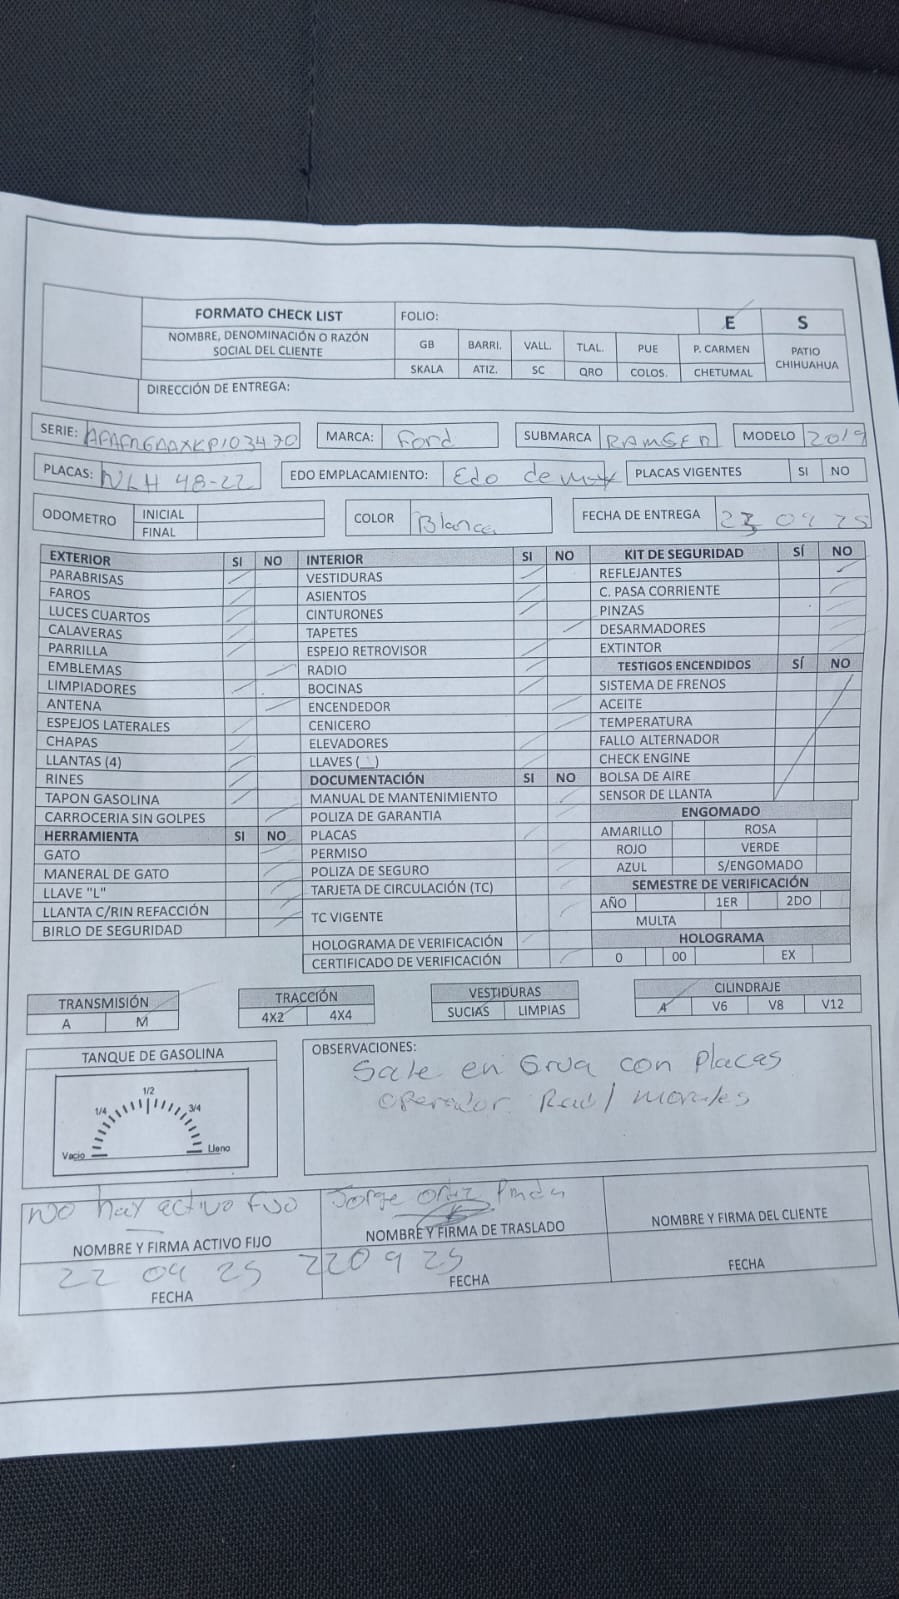 FORMATO CHECK LIST
FOLIO:
E
S
NOMBRE, DENOMINACIÓN O RAZÓN
SOCIAL DEL CLIENTE
GB BARRI. VALL. TLAL. PUE P. CARMEN
PATIO
CHIHUAHUA
SKALA ATIZ. SC QRO COLOS. CHETUMAL
DIRECCIÓN DE ENTREGA:
SERIE:
MARCA: Ford
SUBMARCA
MODELO 2019
PLACAS: NLH 48-22
EDO EMPLACAMIENTO: Edo de mex
PLACAS VIGENTES SI NO
ODOMETRO
INICIAL
FINAL
COLOR Blanca
FECHA DE ENTREGA 23 09 25
EXTERIOR SI NO
PARABRISAS
FAROS
LUCES CUARTOS
CALAVERAS
PARRILLA
EMBLEMAS
LIMPIADORES
ANTENA
ESPEJOS LATERALES
CHAPAS
LLANTAS (4)
RINES
TAPON GASOLINA
CARROCERIA SIN GOLPES
HERRAMIENTA SI NO
GATO
MANERAL DE GATO
LLAVE "L"
LLANTA C/RIN REFACCIÓN
BIRLO DE SEGURIDAD
INTERIOR SI NO
VESTIDURAS
ASIENTOS
CINTURONES
TAPETES
ESPEJO RETROVISOR
RADIO
BOCINAS
ENCENDEDOR
CENICERO
ELEVADORES
LLAVES (__)
DOCUMENTACIÓN SI NO
MANUAL DE MANTENIMIENTO
POLIZA DE GARANTIA
PLACAS
PERMISO
POLIZA DE SEGURO
TARJETA DE CIRCULACIÓN (TC)
TC VIGENTE
HOLOGRAMA DE VERIFICACIÓN
CERTIFICADO DE VERIFICACIÓN
KIT DE SEGURIDAD SÍ NO
REFLEJANTES
C. PASA CORRIENTE
PINZAS
DESARMADORES
EXTINTOR
TESTIGOS ENCENDIDOS SÍ NO
SISTEMA DE FRENOS
ACEITE
TEMPERATURA
FALLO ALTERNADOR
CHECK ENGINE
BOLSA DE AIRE
SENSOR DE LLANTA
ENGOMADO
AMARILLO ROSA
ROJO VERDE
AZUL S/ENGOMADO
SEMESTRE DE VERIFICACIÓN
AÑO 1ER 2DO
MULTA
HOLOGRAMA
0 00 EX
TRANSMISIÓN
A M
TRACCIÓN
4X2 4X4
VESTIDURAS
SUCIAS LIMPIAS
CILINDRAJE
4 V6 V8 V12
TANQUE DE GASOLINA
1/4 1/2 3/4
Vacio Lleno
OBSERVACIONES:
Sale en Grua con Placas
operador Raul morales
No hay activo Fijo
NOMBRE Y FIRMA ACTIVO FIJO
22 09 25
FECHA
Jorge Ortiz
NOMBRE Y FIRMA DE TRASLADO
22 09 25
FECHA
NOMBRE Y FIRMA DEL CLIENTE
FECHA